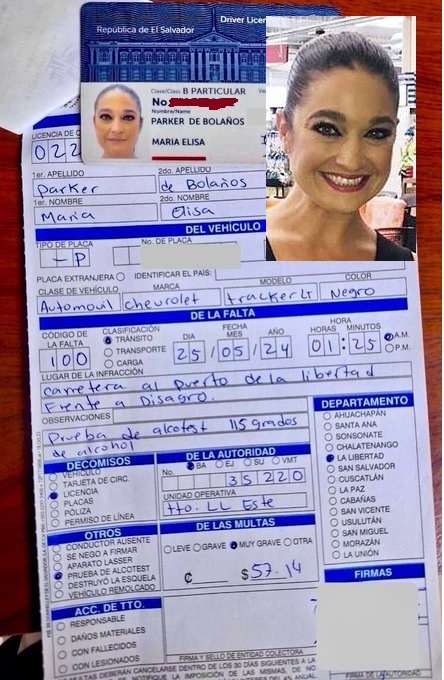 Driver Licen
República de El Salvador
Clase/Class B PARTICULAR
No.
Nombre/Name
PARKER DE BOLAÑOS
MARIA ELISA
LICENCIA DE
022
1er. APELLIDO 2do. APELLIDO
Parker de Bolaños
1er. NOMBRE 2do. NOMBRE
Maria Elisa
DEL VEHÍCULO
TIPO DE PLACA No. DE PLACA
-P
PLACA EXTRANJERA IDENTIFICAR EL PAÍS:
CLASE DE VEHÍCULO MARCA MODELO COLOR
Automovil chevrolet tracker LT Negro
DE LA FALTA
CÓDIGO DE LA FALTA CLASIFICACIÓN FECHA HORA
TRÁNSITO DIA MES AÑO HORAS MINUTOS
100 TRANSPORTE 25/05/24 01:25 A.M.
CARGA P.M.
LUGAR DE LA INFRACCIÓN
carretera al puerto de la libertad
Frente a Disagro.
OBSERVACIONES
Prueba de alcotest 115 grados
de alcohol
DECOMISOS
VEHÍCULO
TARJETA DE CIRC.
LICENCIA
PLACAS
PÓLIZA
PERMISO DE LÍNEA
DE LA AUTORIDAD
BA EJ SU VMT
No. 35220
UNIDAD OPERATIVA
tto. LL Este
OTROS
CONDUCTOR AUSENTE
SE NEGO A FIRMAR
APARATO LASSER
PRUEBA DE ALCOTEST
DESTRUYÓ LA ESQUELA
VEHÍCULO REMOLCADO
DE LAS MULTAS
LEVE GRAVE MUY GRAVE OTRA
¢ $57.14
DEPARTAMENTO
AHUACHAPÁN
SANTA ANA
SONSONATE
CHALATENANGO
LA LIBERTAD
SAN SALVADOR
CUSCATLÁN
LA PAZ
CABAÑAS
SAN VICENTE
USULUTÁN
SAN MIGUEL
MORAZÁN
LA UNIÓN
FIRMAS
ACC. DE TTO.
RESPONSABLE
DAÑOS MATERIALES
CON FALLECIDOS
CON LESIONADOS
FIRMA Y SELLO DE ENTIDAD COLECTORA
FIRMA DE LA AUTORIDAD
MULTAS DEBERÁN CANCELARSE DENTRO DE LOS 30 DÍAS SIGUIENTES A LA